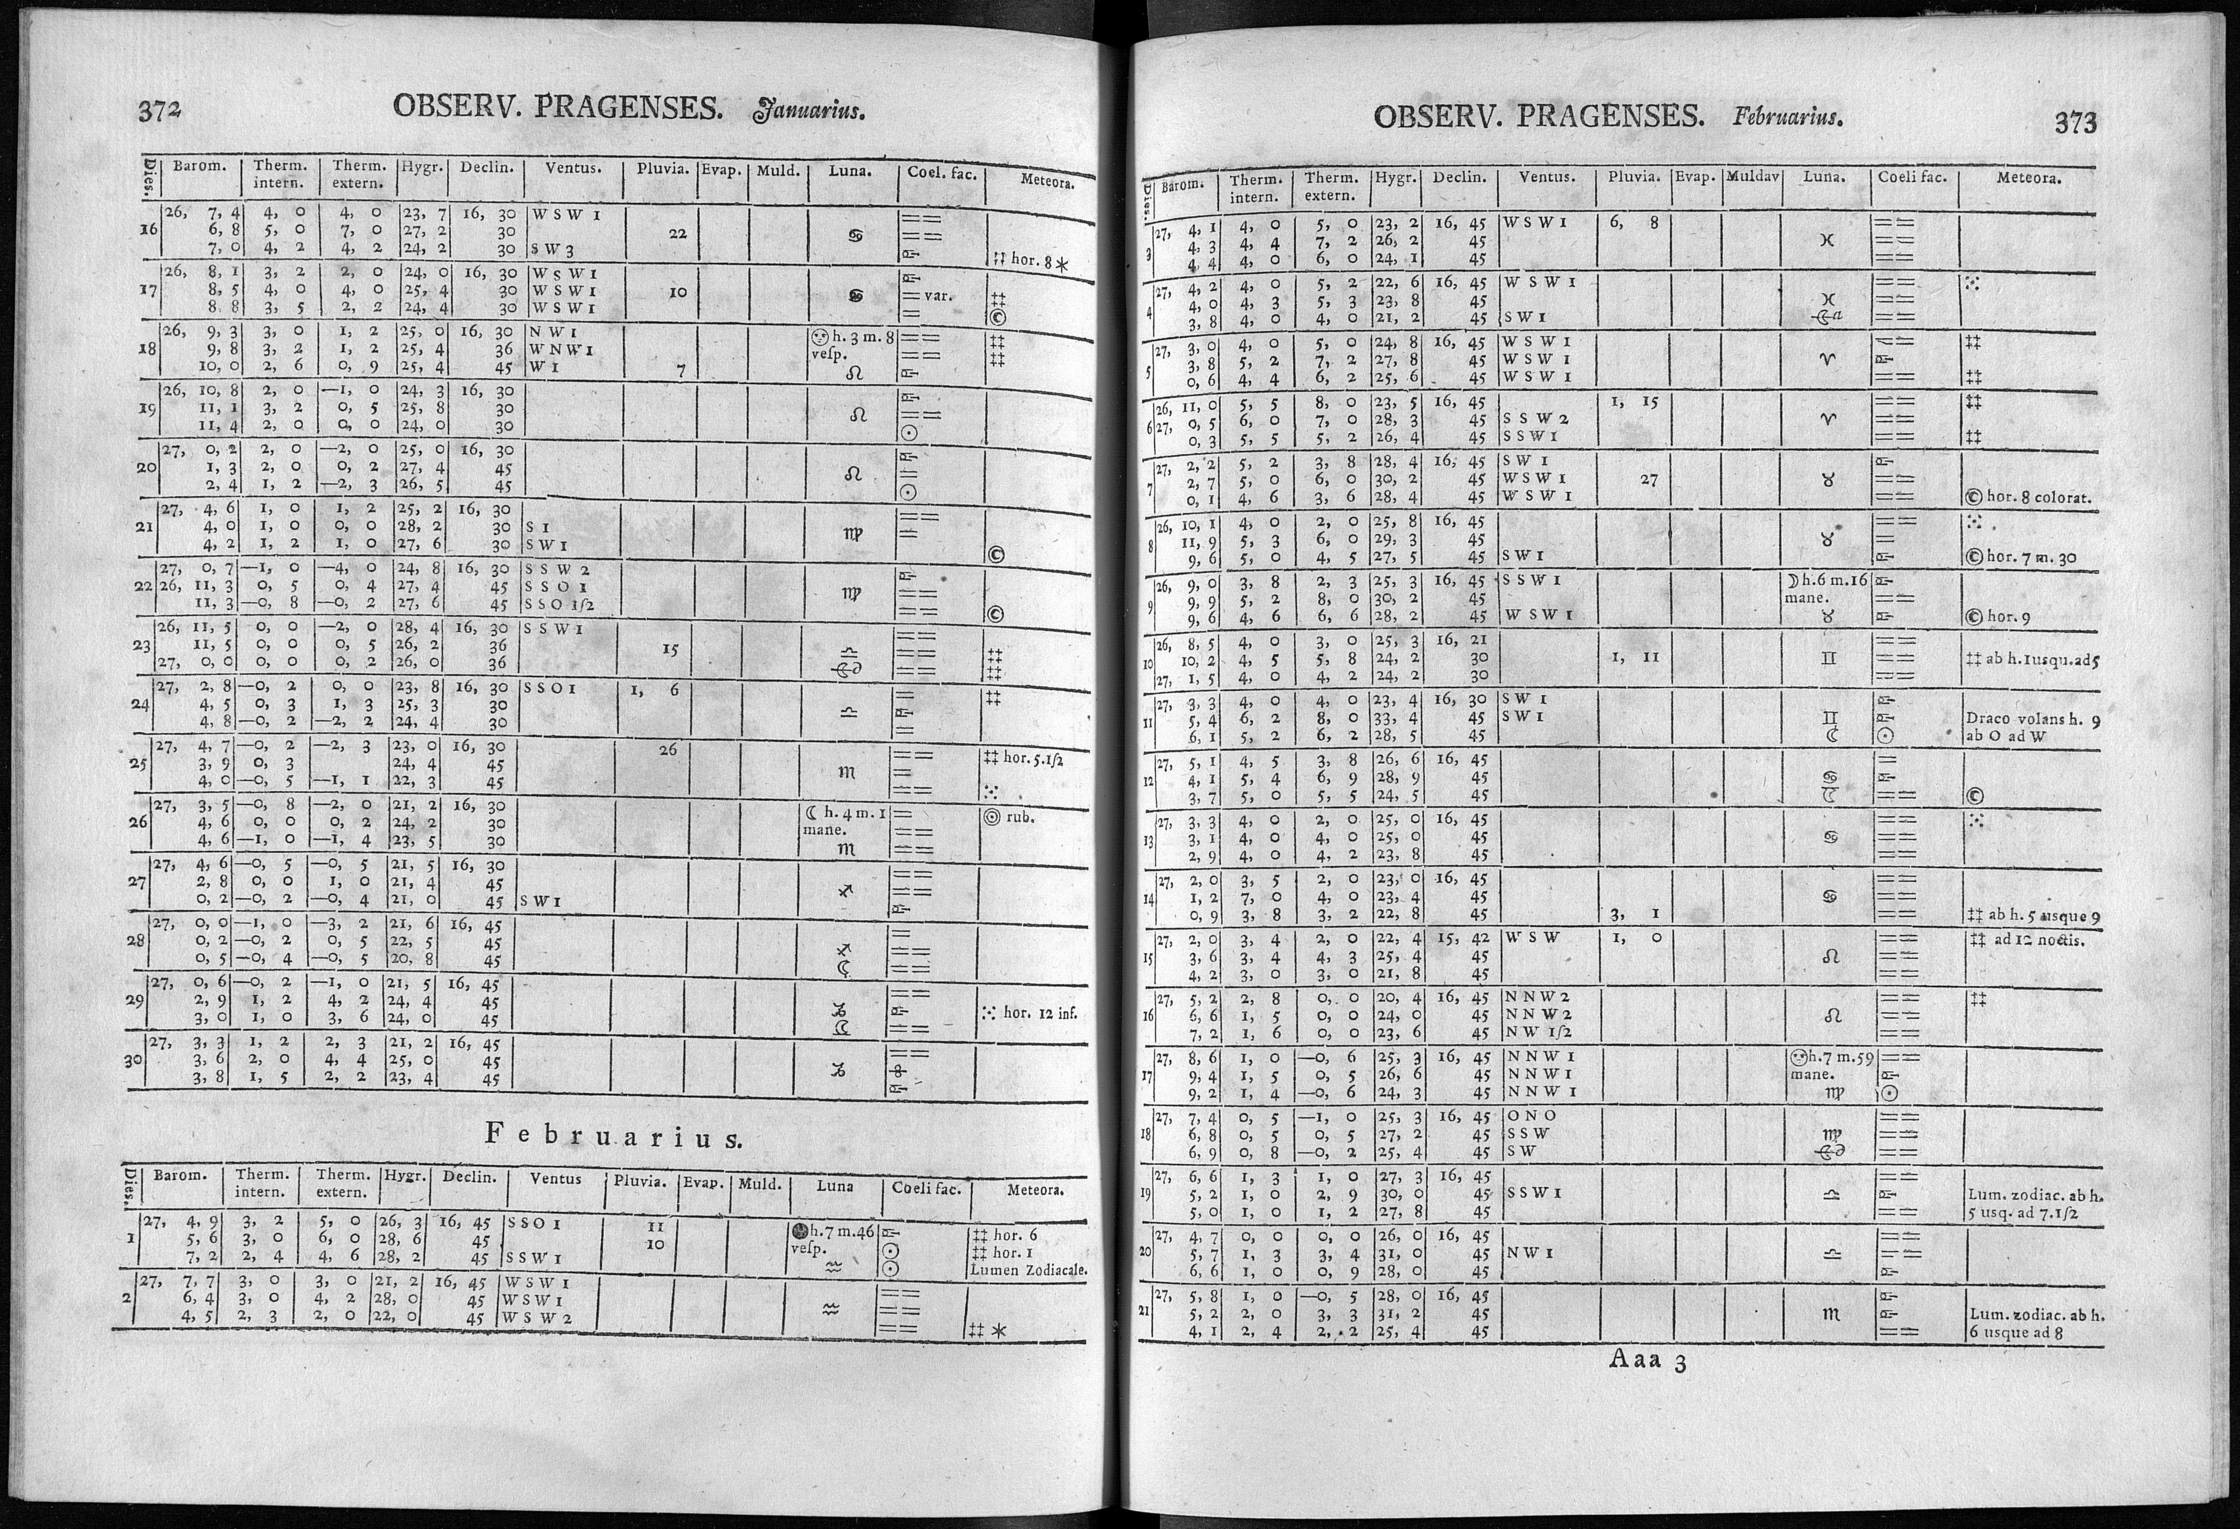 372 OBSERV. PRAGENSES. Januarius.
Dies. Barom. Therm. intern. Therm. extern. Hygr. Declin. Ventus. Pluvia. Evap. Muld. Luna. Coel. fac. Meteora.
26, 7, 4 4, 0 4, 0 23, 7 16, 30 W S W 1 ==
16 6, 8 5, 0 7, 0 27, 2 30 22 ♋ ==
7, 0 4, 2 4, 2 24, 2 30 S W 3 ‡‡ hor. 8 *
26, 8, 1 3, 2 2, 0 24, 0 16, 30 W S W 1
17 8, 5 4, 0 4, 0 25, 4 30 W S W 1 10 ♋ = var. ‡‡
8, 8 3, 5 2, 2 24, 4 30 W S W 1 = ©
26, 9, 3 3, 0 1, 2 25, 0 16, 30 N W 1 h. 3 m. 8 == ‡‡
18 9, 8 3, 2 1, 2 25, 4 36 W N W 1 veſp. == ‡‡
10, 0 2, 6 0, 9 25, 4 45 W 1 7 ♌
26, 10, 8 2, 0 —1, 0 24, 3 16, 30
19 11, 1 3, 2 0, 5 25, 8 30 ♌ ==
11, 4 2, 0 0, 0 24, 0 30 ☉
27, 0, 2 2, 0 —2, 0 25, 0 16, 30
20 1, 3 2, 0 0, 2 27, 4 45 ♌ =
2, 4 1, 2 —2, 3 26, 5 45 ☉
27, 4, 6 1, 0 1, 2 25, 2 16, 30 ==
21 4, 0 1, 0 0, 0 28, 2 30 S 1 ♍ =
4, 2 1, 2 1, 0 27, 6 30 S W 1 ©
27, 0, 7 —1, 0 —4, 0 24, 8 16, 30 S S W 2
22 26, 11, 3 0, 5 0, 4 27, 4 45 S S O 1 ♍ ==
11, 3 —0, 8 —0, 2 27, 6 45 S S O 1ſ2 == ©
26, 11, 5 0, 0 —2, 0 28, 4 16, 30 S S W 1 ==
23 11, 5 0, 0 0, 5 26, 2 36 15 ♎ == ‡‡
27, 0, 0 0, 0 0, 2 26, 0 36 == ‡‡
27, 2, 8 —0, 2 0, 0 23, 8 16, 30 S S O 1 1, 6 = ‡‡
24 4, 5 0, 3 1, 3 25, 3 30 ♎
4, 8 —0, 2 —2, 2 24, 4 30 =
27, 4, 7 —0, 2 —2, 3 23, 0 16, 30 26 == ‡‡ hor. 5.1ſ2
25 3, 9 0, 3 24, 4 45 ♏ =
4, 0 —0, 5 —1, 1 22, 3 45 == ⁙
27, 3, 5 —0, 8 —2, 0 21, 2 16, 30 ☾ h. 4 m. 1 = ◎ rub.
26 4, 6 0, 0 0, 2 24, 2 30 mane. ==
4, 6 —1, 0 —1, 4 23, 5 30 ♏ ==
27, 4, 6 —0, 5 —0, 5 21, 5 16, 30 ==
27 2, 8 0, 0 1, 0 21, 4 45 ♐ ==
0, 2 —0, 2 —0, 4 21, 0 45 S W 1
27, 0, 0 —1, 0 —3, 2 21, 6 16, 45 =
28 0, 2 —0, 2 0, 5 22, 5 45 ♐ =
0, 5 —0, 4 —0, 5 20, 8 45 ☾ ==
27, 0, 6 —0, 2 —1, 0 21, 5 16, 45 ==
29 2, 9 1, 2 4, 2 24, 4 45 ♑ ⁙ hor. 12 inf.
3, 0 1, 0 3, 6 24, 0 45 ☾ ==
27, 3, 3 1, 2 2, 3 21, 2 16, 45 ==
30 3, 6 2, 0 4, 4 25, 0 45 ♑
3, 8 1, 5 2, 2 23, 4 45
Februarius.
Dies. Barom. Therm. intern. Therm. extern. Hygr. Declin. Ventus Pluvia. Evap. Muld. Luna Coeli fac. Meteora.
27, 4, 9 3, 2 5, 0 26, 3 16, 45 S S O 1 11 h. 7 m. 46 ‡‡ hor. 6
1 5, 6 3, 0 6, 0 28, 6 45 10 veſp. ☉ ‡‡ hor. 1
7, 2 2, 4 4, 6 28, 2 45 S S W 1 ♒ ☉ Lumen Zodiacale.
27, 7, 7 3, 0 3, 0 21, 2 16, 45 W S W 1 ==
2 6, 4 3, 0 4, 2 28, 0 45 W S W 1 ♒ ==
4, 5 2, 3 2, 0 22, 0 45 W S W 2 == ‡‡ *
OBSERV. PRAGENSES. Februarius. 373
Dies. Barom. Therm. intern. Therm. extern. Hygr. Declin. Ventus. Pluvia. Evap. Muldav Luna. Coeli fac. Meteora.
27, 4, 1 4, 0 5, 0 23, 2 16, 45 W S W 1 6, 8 ==
3 4, 3 4, 4 7, 2 26, 2 45 ♓ ==
4, 4 4, 0 6, 0 24, 1 45 ==
27, 4, 2 4, 0 5, 2 22, 6 16, 45 W S W 1 == ⁙
4 4, 0 4, 3 5, 3 23, 8 45 ♓ ==
3, 8 4, 0 4, 0 21, 2 45 S W 1 ==
27, 3, 0 4, 0 5, 0 24, 8 16, 45 W S W 1 == ‡‡
5 3, 8 5, 2 7, 2 27, 8 45 W S W 1 ♈
0, 6 4, 4 6, 2 25, 6 45 W S W 1 == ‡‡
26, 11, 0 5, 5 8, 0 23, 5 16, 45 1, 15 == ‡‡
6 27, 0, 5 6, 0 7, 0 28, 3 45 S S W 2 ♈ ==
0, 3 5, 5 5, 2 26, 4 45 S S W 1 == ‡‡
27, 2, 2 5, 2 3, 8 28, 4 16, 45 S W 1
7 2, 7 5, 0 6, 0 30, 2 45 W S W 1 27 ♉ ==
0, 1 4, 6 3, 6 28, 4 45 W S W 1 == © hor. 8 colorat.
26, 10, 1 4, 0 2, 0 25, 8 16, 45 == ⁙
8 11, 9 5, 3 6, 0 29, 3 45 ♉ =
9, 6 5, 0 4, 5 27, 5 45 S W 1 © hor. 7 m. 30
26, 9, 0 3, 8 2, 3 25, 3 16, 45 S S W 1 ☽ h. 6 m. 16
9 9, 9 5, 2 8, 0 30, 2 45 mane. ==
9, 6 4, 6 6, 6 28, 2 45 W S W 1 ♉ © hor. 9
26, 8, 5 4, 0 3, 0 25, 3 16, 21 ==
10 10, 2 4, 5 5, 8 24, 2 30 1, 11 ♊ == ‡‡ ab h. 1 usqu. ad 5
27, 1, 5 4, 0 4, 2 24, 2 30 ==
27, 3, 3 4, 0 4, 0 23, 4 16, 30 S W 1
11 5, 4 6, 2 8, 0 33, 4 45 S W 1 ♊ Draco volans h. 9
6, 1 5, 2 6, 2 28, 5 45 ☾ ☉ ab O ad W
27, 5, 1 4, 5 3, 8 26, 6 16, 45 =
12 4, 1 5, 4 6, 9 28, 9 45 ♋
3, 7 5, 0 5, 5 24, 5 45 ☾ == ©
27, 3, 3 4, 0 2, 0 25, 0 16, 45 == ⁙
13 3, 1 4, 0 4, 0 25, 0 45 ♋ ==
2, 9 4, 0 4, 2 23, 8 45 ==
27, 2, 0 3, 5 2, 0 23, 0 16, 45 ==
14 1, 2 7, 0 4, 0 23, 4 45 ♋ ==
0, 9 3, 8 3, 2 22, 8 45 3, 1 == ‡‡ ab h. 5 usque 9
27, 2, 0 3, 4 2, 0 22, 4 15, 42 W S W 1, 0 == ‡‡ ad 12 noctis.
15 3, 6 3, 4 4, 3 25, 4 45 ♌ ==
4, 2 3, 0 3, 0 21, 8 45 ==
27, 5, 2 2, 8 0, 0 20, 4 16, 45 N N W 2 == ‡‡
16 6, 6 1, 5 0, 0 24, 0 45 N N W 2 ♌ ==
7, 2 1, 6 0, 0 23, 6 45 N W 1ſ2 ==
27, 8, 6 1, 0 —0, 6 25, 3 16, 45 N N W 1 h. 7 m. 59 ==
17 9, 4 1, 5 0, 5 26, 6 45 N N W 1 mane.
9, 2 1, 4 —0, 6 24, 3 45 N N W 1 ♍ ☉
27, 7, 4 0, 5 —1, 0 25, 3 16, 45 O N O ==
18 6, 8 0, 5 0, 5 27, 2 45 S S W ♍ ==
6, 9 0, 8 —0, 2 25, 4 45 S W ==
27, 6, 6 1, 3 1, 0 27, 3 16, 45 ==
19 5, 2 1, 0 2, 9 30, 0 45 S S W 1 ♎ Lum. zodiac. ab h.
5, 0 1, 0 1, 2 27, 8 45 == 5 usq. ad 7.1ſ2
27, 4, 7 0, 0 0, 0 26, 0 16, 45 ==
20 5, 7 1, 3 3, 4 31, 0 45 N W 1 ♎ ==
6, 6 1, 0 0, 9 28, 0 45
27, 5, 8 1, 0 —0, 5 28, 0 16, 45
21 5, 2 2, 0 3, 3 31, 2 45 ♏ Lum. zodiac. ab h.
4, 1 2, 4 2, 2 25, 4 45 == 6 usque ad 8
Aaa 3